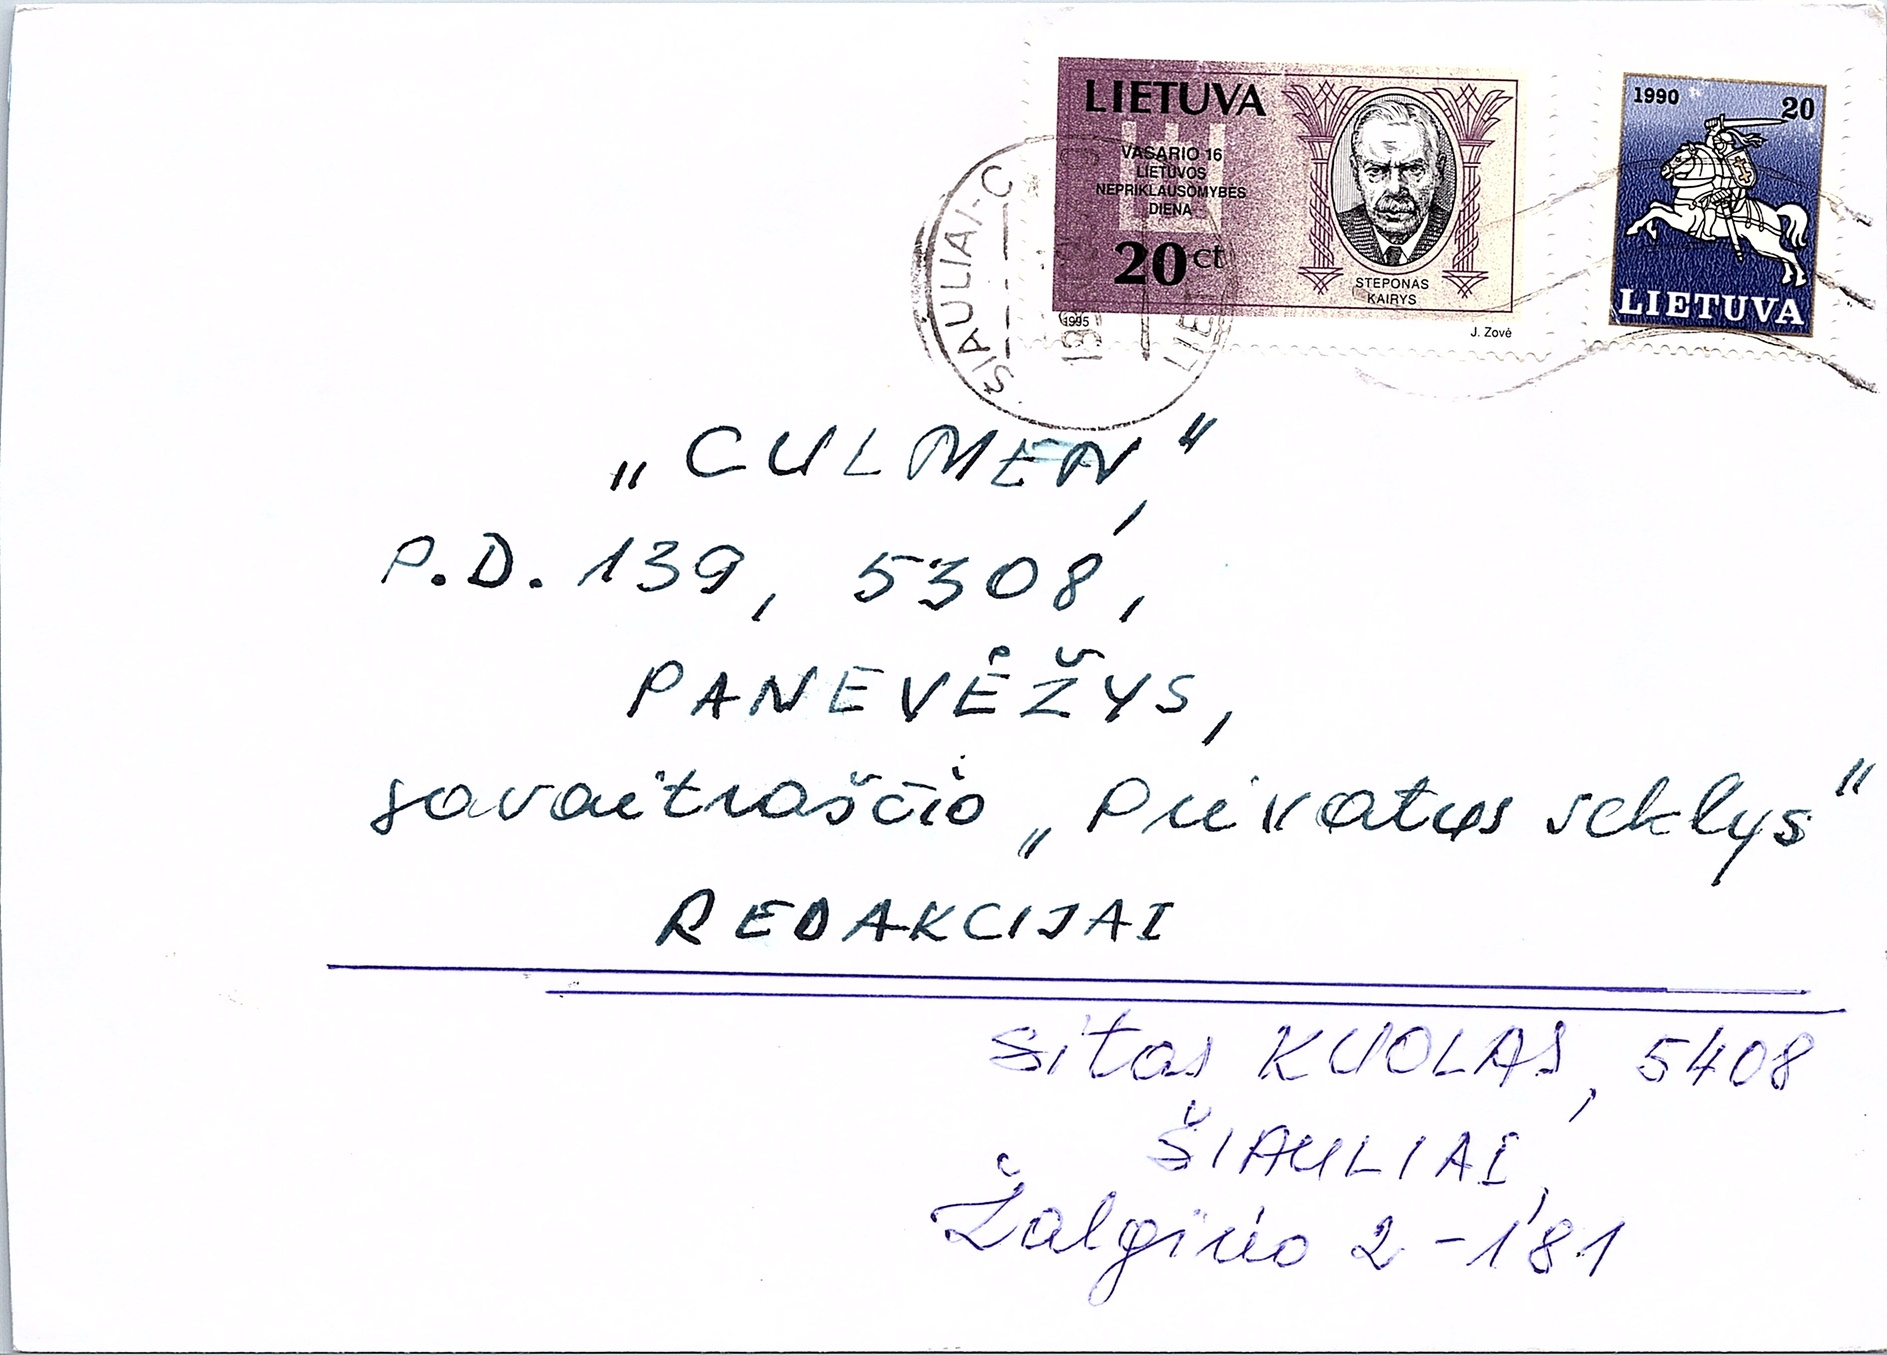 LIETUVA
VASARIO 16
LIETUVOS
NEPRIKLAUSOMYBĖS
DIENA
20 ct
STEPONAS
KAIRYS
1995
J. Zovė
1990
20
LIETUVA
ŠIAULIAI-C
„CULMEN,“
P.D. 139, 5308,
PANEVĖŽYS,
savaitraščio „Privatus seklys“
REDAKCIJAI
Sitas KUOLAS, 5408
ŠIAULIAI,
Žalgirio 2-181